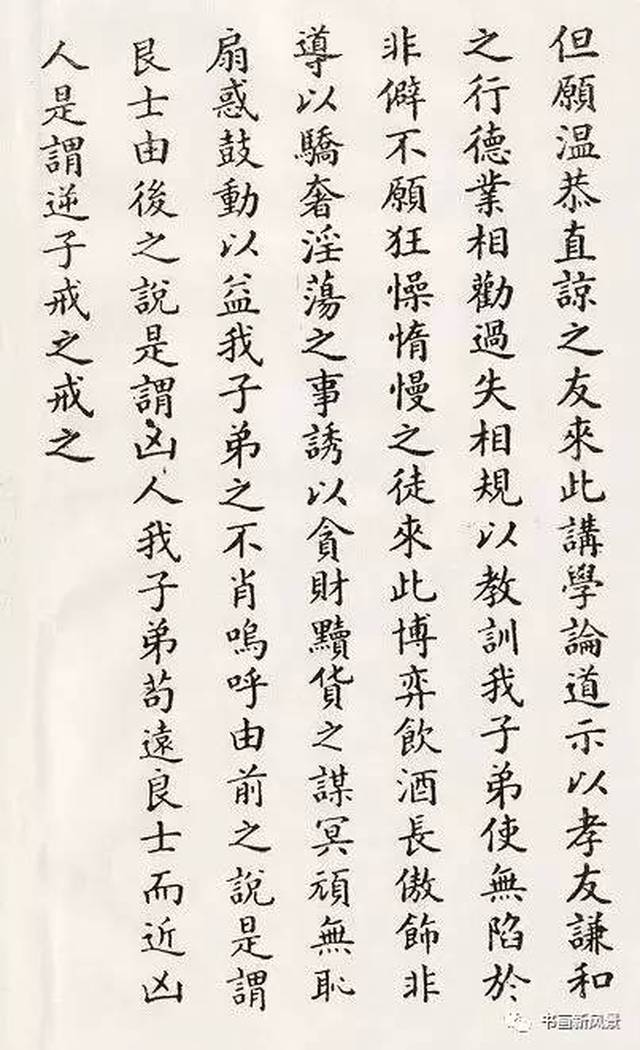 但願温恭直諒之友來此講學論道示以孝友謙和
之行德業相勸過失相規以教訓我子弟使無陷於
非僻不願狂懆惰慢之徒來此博弈飲酒長傲飾非
導以驕奢淫蕩之事誘以貪財黷貨之謀冥頑無恥
扇惑鼓動以益我子弟之不肖嗚呼由前之說是謂
良士由後之說是謂凶人我子弟苟遠良士而近凶
人是謂逆子戒之戒之
书画新风景